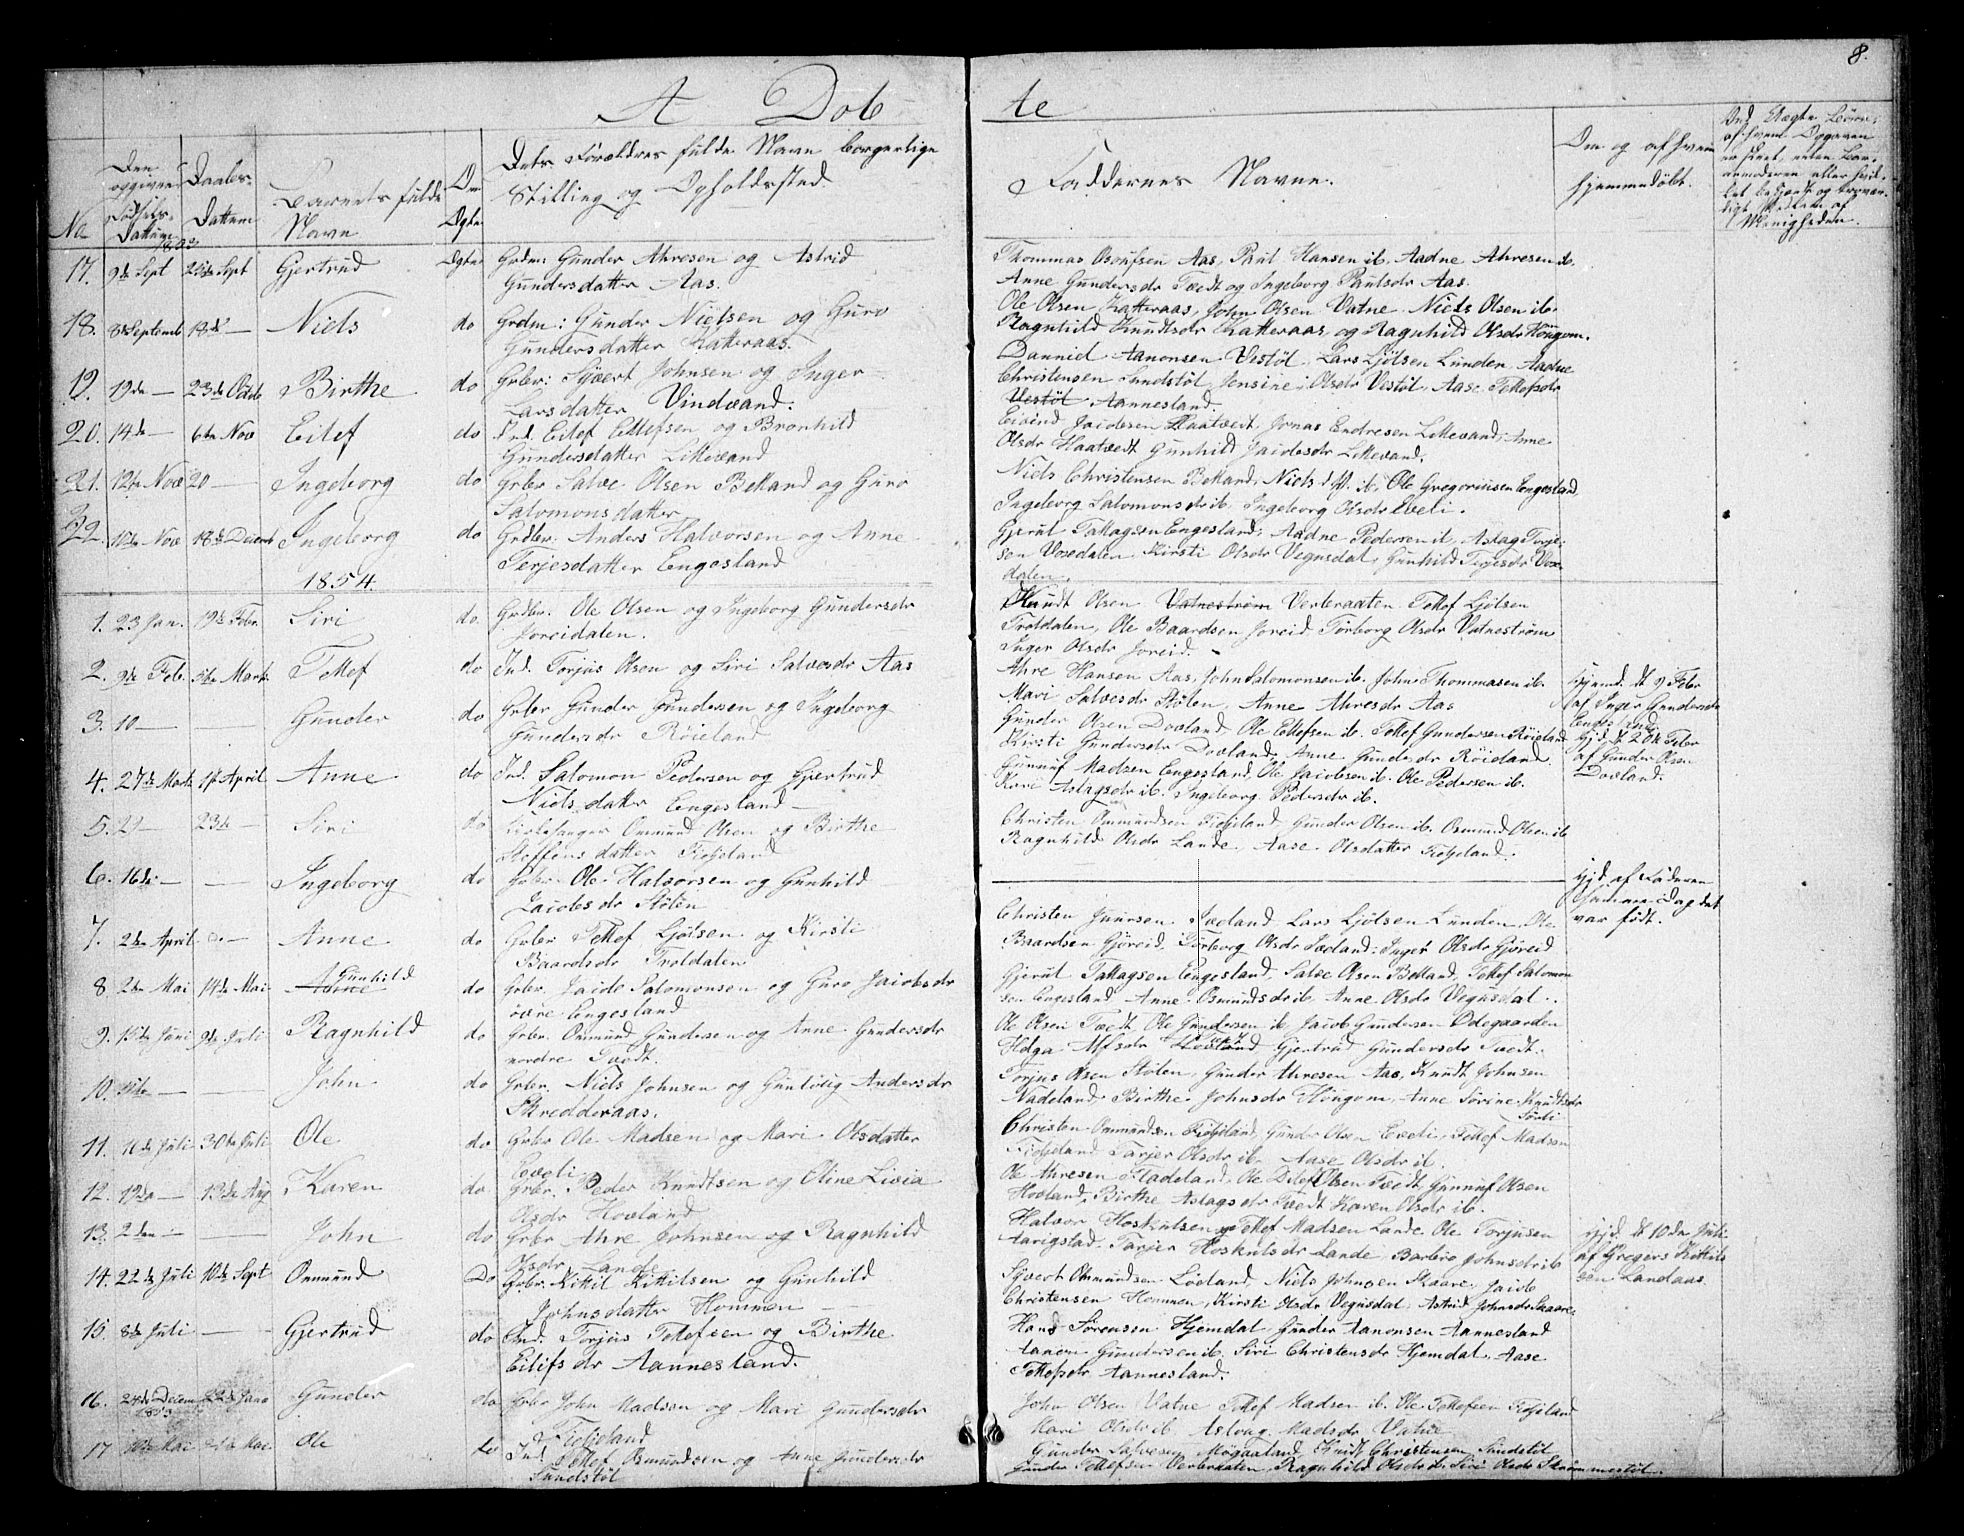 8.
A Døbte
No
Den opgivne Fødsels-Dattum
Daabs-Dattum
Barnets fulde Navn
Om Ægte
Dets Forældres fulde Navn borgerlige
Stilling og Opholdssted
Faddernes Navne.
Om og af hvem
hjemmedøbt.
Menigheden.
1853
17. 9de Sept Sept Gjertrud Ægte Grdm: Gunder Ahresen og Astrid
Gundersdatter Aas.
Thommas Aas, Paul Hansen ib. Aadne Ahresen ib.
Anne Gundersdr Tvedt og Ingeborg Paulsdr Aas.
18. 8de Septemb 18de — Niels do Grdm: Gunder Nielsen og Guro
Gundersdatter Katteraas.
Ole Olsen Katteraas, John Olsen Vatne Niels Olsen ib.
Ragnhild Knudtsdr Katteraas, og Ragnhild Olsdr Hongom.
19. 19de — 23de Octb Birthe do Grbr: Sjvert Johnsen og Inger
Larsdatter Vindvand.
Danniel Aanonsen Vestøl. Lars Ljølsen Lunden, Aadne
Christensen Sundstøl, Jensine Olsdr Vestøl, Aase Tellefsdr
Vestøl Aannesland.
20. 14de — 6te Nov Eilef do Ind. Eilef Ellefsen og Bronhild
Gundersdatter Littevand
Eivend Jacobsen Haatvedt, Jonas Endresen Littevand, Anne
Olsdr Haatvedt Gunhild Jacobsdr Littevand.
21. 12te Nov 20 — Ingeborg do Grbr Salve Olsen Belland og Guro
Salomonsdatter
Niels Christensen Belland, Niels ib, Ole Gregoriusen Engesland,
Ingeborg Salomonsdr ib. Ingeborg Olsdr Eveli.
22. 10de Nov 18de Decemb Ingeborg do Grdbr. Anders Halvorsen og Anne
Terjesdatter Engesland
Gjerul Tallagsen Engesland, Aadne Pedersen il, Aslag Terje-
sen Voredalen, Kirsti Olsdr Vegusdal, Gunhild Terjesdr Vore-
dalen.
1854.
1. 23 Jan. 19de Febr. Siri do. Grdbr. Ole Olsen og Ingeborg Gundersdr
Joreidalen.
Knudt Olsen Vatnestrøm Verleraaten Tellef Ljølsen
Troldalen, Ole Baardsen Joreid, Torborg Olsdr Vatnestrøm
Inger Olsdr Joreid.
2. 9de Feb. 5te Mart. Tellef do Ind. Torjus Olsen og Siri Salvesdr Aas
Ahre Hansen Aas, John Salomonsen ib. John Thommasen ib.
Mari Salvesdr Stølen, Anne Ahresdr Aas
Hjemd. dt 9 Febr
af Inger Gundersdr
Engesland
3. 10 — — Gunder do Grbr Gunder Gundersen og Ingeborg
Gundersdr Røieland
Gunder Olsen Dovland, Ole Ellefsen ib. Tellef Gundersen Røieland
Kirsti Gundersdr Dovland, Anne Gundersdr Røieland.
Hjd. dt 20de Febr
af Gunder Olsen
Dovland.
4. 27de Marts 17 April Anne do Ind. Salomon Pedersen og Gjertrud
Nielsdatter Engesland —
Gunnuf Madsen Engesland, Ole Jacobsen ib. Ole Pedersen ib.
Kari Aslagsdr ib. Ingeborg Pedersdr ib.
5. 29 — 23de — Siri do Kirkesanger Ommund Olsen og Birthe
Steffensdatter Fidjeland
Christen Ommundsen Fidjeland Gunder Olsen ib. Osmund Olsen ib
Ragnhild Olsdr Lande. Aase Olsdatter Fidjeland.
6. 16de — — Ingeborg do Grbr. Ole Halvorsen og Gunhild
Jacobsdr Stølen
Hjd. af Faderen
samme Dag det
var født.
7. 2den April — Anne do Grbr Tellef Ljølsen og Kirsti
Baardsdr Troldalen
Christen Lars Ljølsen Lunden, Ole
Baardsen Gjøreid, Torborg Olsdr Inger Olsdr Gjøreid
8. 2den Mai 14de Mai Anne Gunhild do Grbr. Jacob Salomonsen og Guro Jacobsdr
øvre Engesland
Gjerul Tallagsen Engesland, Salve Olsen Belland, Tellef Salomon
sen Engesland Anne Osmundsdr ib. Anne Olsdr Vegusdal.
9. 15de Juni 9de Juli Ragnhild do Grbr. Ommund Gundersen og Anne Gundersdr
nordre Tvedt.
Ole Olsen Tvedt, Ole Gundersen ib. Jacob Gundersen Ødegaarden
Helga Gjertrud Gundersdr Tvedt.
10. — — John do Grbr. Niels Johnsen og Guntolig Andersdr
Skredderaas.
Torjus Olsen Stølen, Gunder Ahresen Aas, Knudt Johnsen
Nadeland, Birthe Johnsdr Hongom, Anne Sørine Knudtsdr
11. 16de Juli 30te Juli Ole do Grbr Ole Madsen og Mari Olsdatter
Eveli
Christen Ommundsen Fidjeland, Gunder Olsen Eveli, Tellef Madsen
Fidjeland Tarjer Olsdr ib. Aase Olsdr il.
12. 19de — 13de Aug Karen do Grbr. Peder Knudtsen og Oline Livia
Olsdr Hovland
Ole Ahresen Fladeland, Ole Ditlef Olsen Tvedt, Gunnuf Olsen
Hovland, Birthe Aslagsdr Tvedt Karen Olsdr ib.
13. 2den — — John do Grbr Ahre Johnsen og Ragnhild
Olsdr Lande
Halvor Hoskulsen og Tellef Madsen Lande. Ole Torjusen
Aarigstad. Tarjer Hoskulsdr Lande Barbro Johnsdr ib
Hjd. dt 10de Juli
af Gregers Kittils
sen Landaas.
14. 22de Juli 10de Sept Ommund Do Grbr. Kittil Kittilsen og Gunhild
Johnsdatter Hommen
Sjvert Ommundsen Løeland, Niels Johnsen Skaare, Jacob
Christensen Hommen, Kirsti Olsdr Vegusdal. Astrid Johnsdr Skaare
15. 8de Juli — Gjertrud do Ind. Torjus Tellefsen og Birthe
Eilifsdr Aannesland.
Hans Sørensen Hjemdal. Gunder Aanonsen Aannesland
Aanon Gundersen ib. Siri Christensdr Hjemdal, Aase
Tellefsdr Aannesland.
16. 24de Decem 1853 22de Janu Gunder do Grbr John Madsen og Mari Gundersdr
Fidjeland
John Olsen Vatne Tellef Madsen ib. Ole Tellefsen Fidjeland
Mari Olsdr ib Aslaug Madsdr Vatne
17. Mai Mai Ole do Ind. Tellef Osmundsen og Anne Gundersdr
Sundstøl
Gunder Salvesen Knudt Christensen Sundstøl
Gunder Tellefsen Verleraaten, Ragnhild Olsdr ib. Siri Olsdr